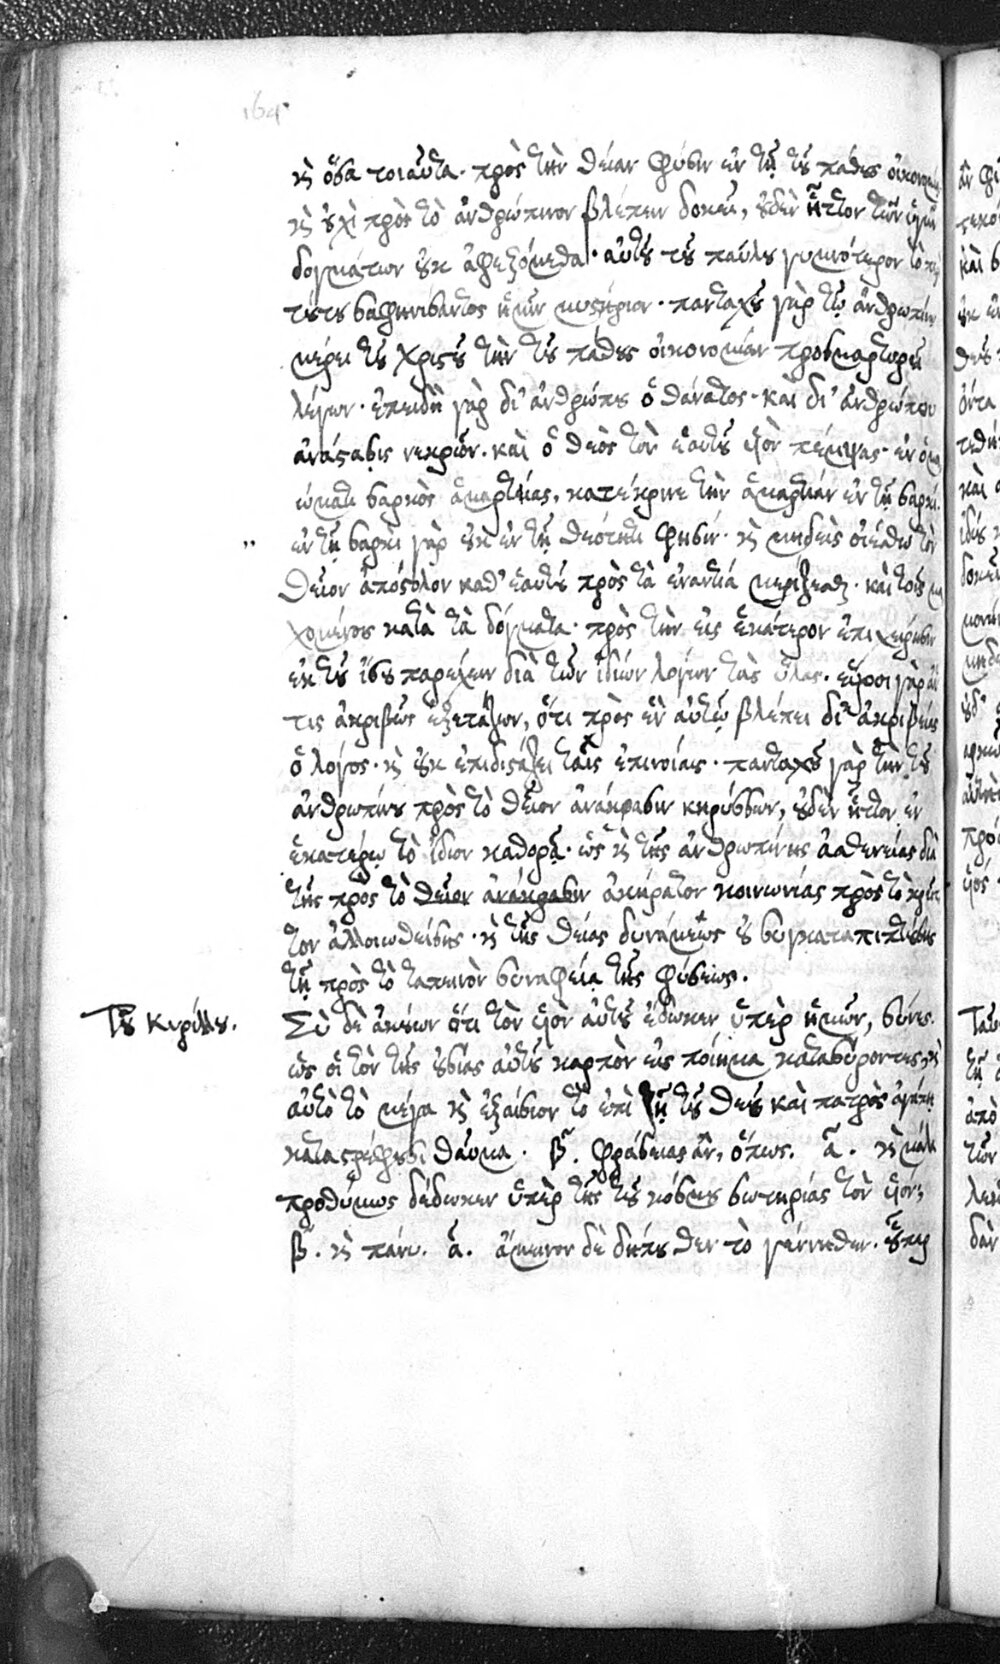 164
κὶ ὅσα τοιαῦτα. πρὸς τὴν θείαν φύσιν ἐν τῇ τοῦ πάθους οἰκονομίᾳ
κὶ οὐχὶ πρὸς τὸ ἀνθρώπινον βλέπειν δοκεῖ, οὐδὲν ἧττον τῶν
δογμάτων οὐκ ἀφεξόμεθα. αὐτοῦ τοῦ παύλου γυμνότερον τὸ
τοῦτο σαφηνίσαντος ἡμῖν μυστήριον. πανταχοῦ γὰρ τῷ ἀνθρωπίνῳ
μέρει τοῦ Χριστοῦ τὴν τοῦ πάθους οἰκονομίαν προσμαρτυρεῖ
λέγων. ἐπειδὴ γὰρ δι' ἀνθρώπου ὁ θάνατος. καὶ δι' ἀνθρώπου
ἀνάστασις νεκρῶν. καὶ ὁ θεὸς τὸν ἑαυτοῦ υἱὸν πέμψας. ἐν ὁμοι
ώματι σαρκὸς ἁμαρτίας, κατέκρινε τὴν ἁμαρτίαν ἐν τῇ σαρκί.
ἐν τῇ σαρκὶ γὰρ οὐκ ἐν τῇ θεότητι φησίν. κὶ μηδεὶς οἰέσθω τὸν
θεῖον ἀπόστολον καθ' ἑαυτοῦ πρὸς τὰ ἐναντία μερίζεσθαι. καὶ τοῖς μα
χομένοις κατὰ τὰ δόγματα. πρὸς τὴν εἰς ἑκάτερον ἐπιχείρησιν
ἐκ τοῦ ἴσου παρέχειν διὰ τῶν ἰδίων λόγων τὰς ὕλας. εὕροι γὰρ ἄν
τις ἀκριβῶς ἐξετάζων, ὅτι πρὸς ἓν αὐτῷ βλέπει δι' ἀκριβείας
ὁ λόγος. κὶ οὐκ ἐπιδιστάζει ταῖς ἐπινοίαις. πανταχοῦ γὰρ τὴν τοῦ
ἀνθρωπίνου πρὸς τὸ θεῖον ἀνάκρασιν κηρύσσων, οὐδὲν ἧττον ἐν
ἑκατέρῳ τὸ ἴδιον καθορᾷ. ὡς κὶ τῆς ἀνθρωπίνης ἀσθενείας διὰ
τῆς πρὸς τὸ θεῖον ἀνάκρασιν ἀκήρατον κοινωνίας πρὸς τὸ κρεῖτ
τον ἀλλοιωθείσης. κὶ τῆς θείας δυνάμεως οὐ συγκαταπιπτούσης
τῇ πρὸς τὸ ταπεινὸν συναφείᾳ τῆς φύσεως.
Τοῦ Κυρίλλου.
Σὺ δὲ ἀκούων ὅτι τὸν υἱὸν αὐτοῦ ἔδωκεν ὑπὲρ ἡμῶν, σύνες.
ὡς οἱ τὸν τῆς οὐσίας αὐτοῦ καρπὸν εἰς ποίημα κατασύροντες, κὶ
αὐτὸ τὸ μέγα κὶ ἐξαίσιον τὸ ἐπὶ τῇ τοῦ θεοῦ καὶ πατρὸς ἀγάπῃ
καταστρέφουσι θαῦμα. β. φράσειας ἄν, ὅπως. α. κὶ μάλα
προθύμως δέδωκεν ὑπὲρ τῆς τοῦ κόσμου σωτηρίας τὸν υἱόν;
β. κὶ πάνυ. α. ἄμεινον δὲ δήπουθεν τὸ γέννηθεν. οὗπερ